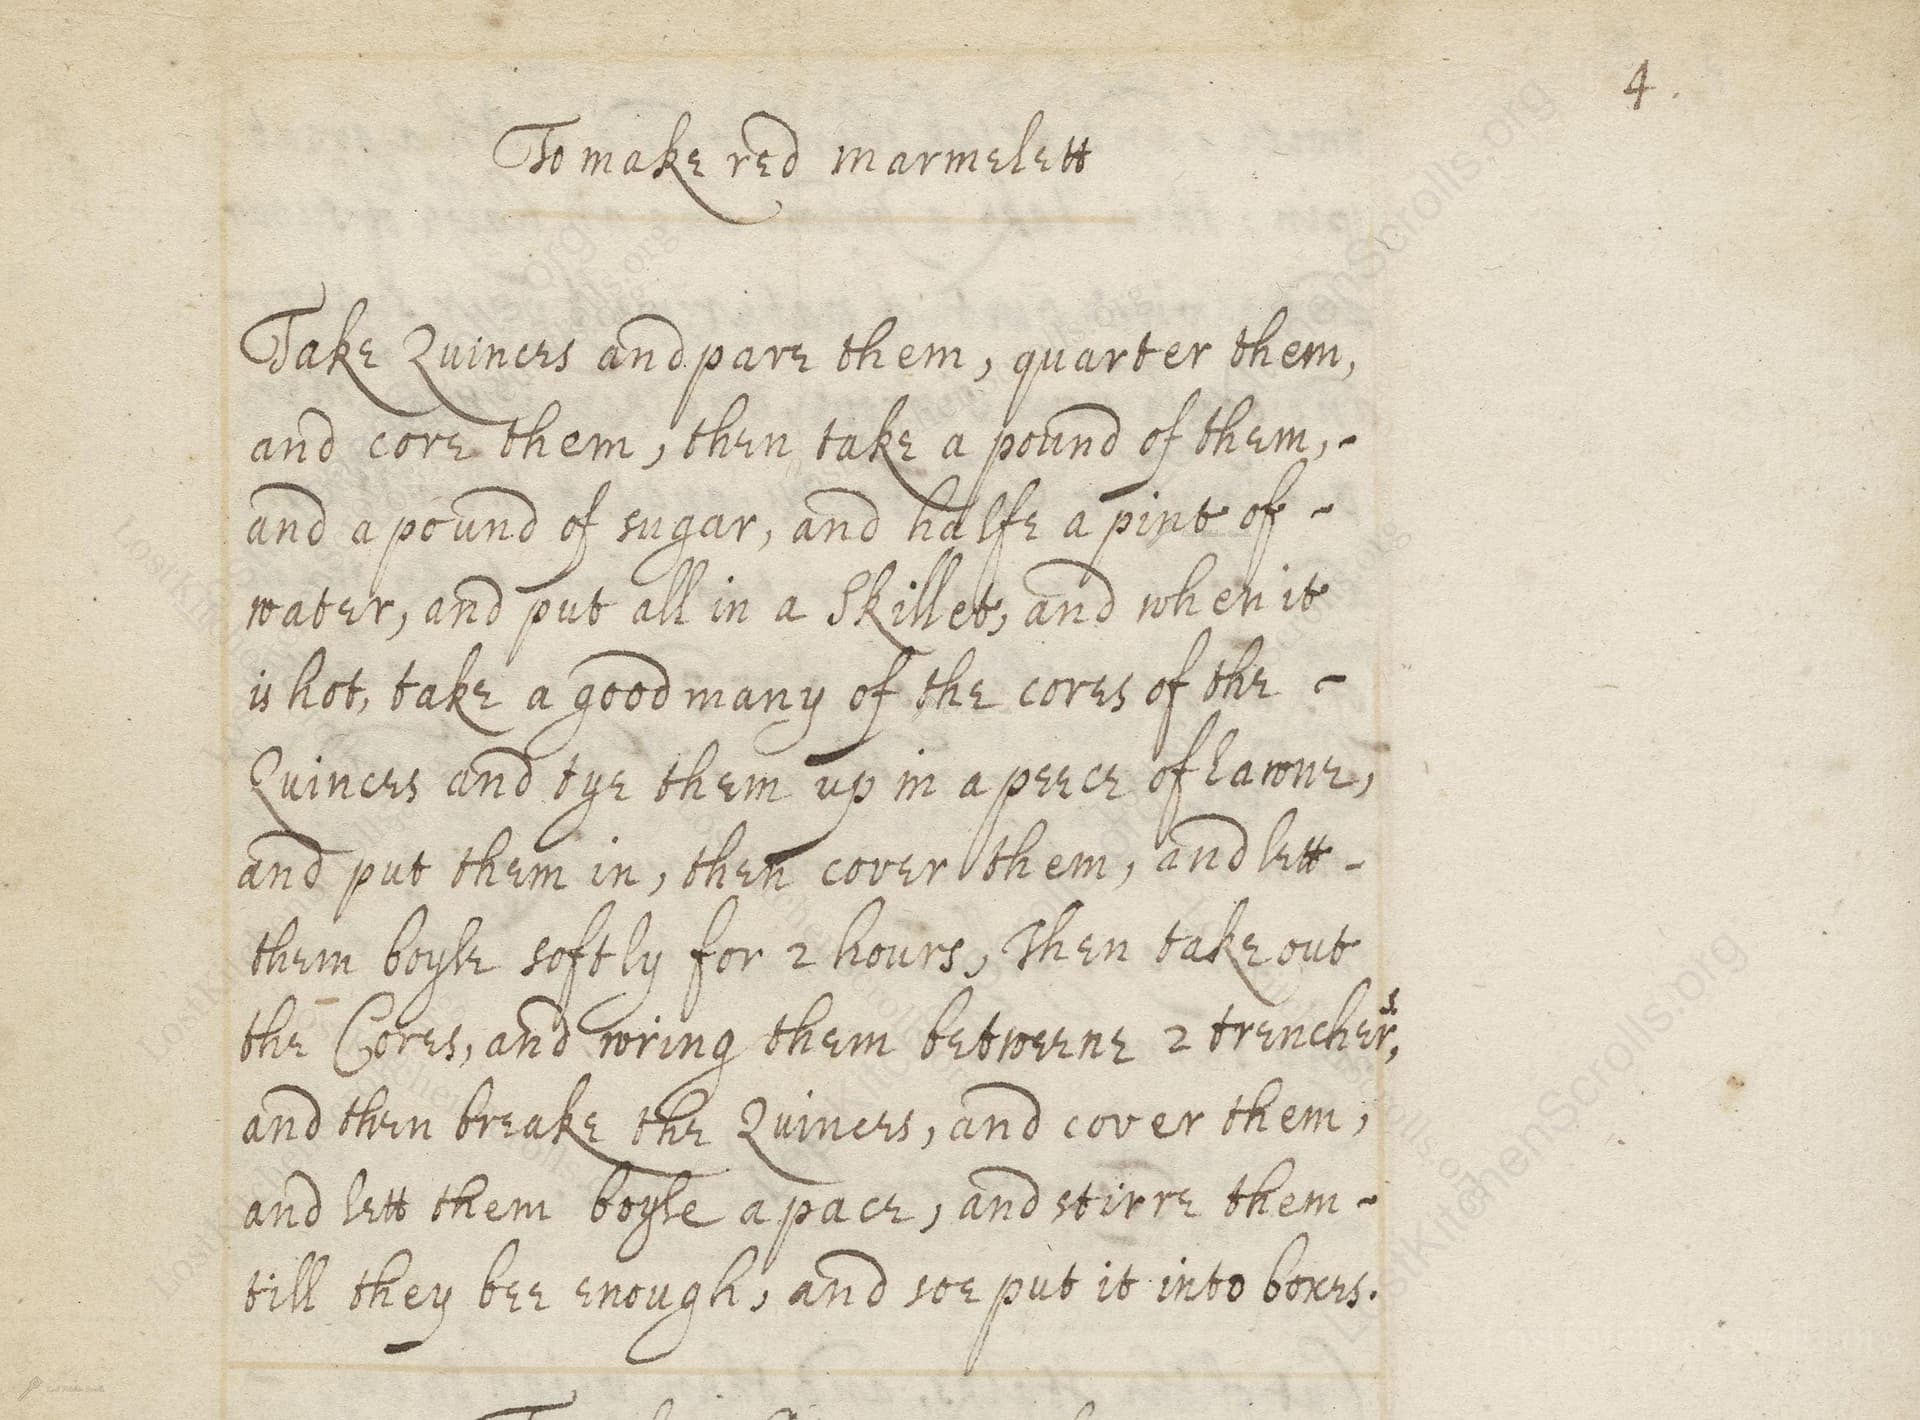 4.
To make red marmelett
Take Quinces and pare them, quarter them,
and core them, then take a pound of them, -
and a pound of sugar, and halfe a pint of -
water, and put all in a Skillet, and when it
is hot, take a good many of the cores of the -
Quinces and tye them up in a peece of Lawne,
and put them in, then cover them, and lett -
them boyle softly for 2 hours, Then take out
the Cores, and wring them betweene 2 trenchers,
and then breake the Quinces, and cover them,
and lett them boyle a pace, and stirre them -
till they bee enough, and soe put it into boxes.
LostKitchenScrolls.org